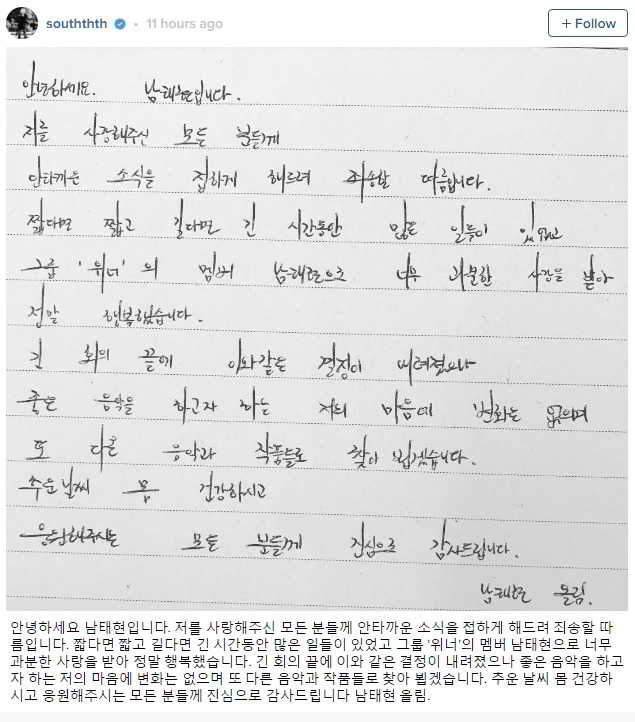 southtth • 11 hours ago + Follow
안녕하세요. 남태현입니다.
저를 사랑해주신 모든 분들께
안타까운 소식을 접하게 해드려 죄송할 따름입니다.
짧다면 짧고 길다면 긴 시간동안 많은 일들이 있었고
그룹 '위너' 의 멤버 남태현으로 너무 과분한 사랑을 받아
정말 행복했습니다.
긴 회의 끝에 이와같은 결정이 내려졌으나
좋은 음악을 하고자 하는 저의 마음에 변화는 없으며
또 다른 음악과 작품들로 찾아 뵙겠습니다.
추운날씨 몸 건강하시고
응원해주시는 모든 분들께 진심으로 감사드립니다.
남태현 올림.
안녕하세요 남태현입니다. 저를 사랑해주신 모든 분들께 안타까운 소식을 접하게 해드려 죄송할 따
름입니다. 짧다면 짧고 길다면 긴 시간동안 많은 일들이 있었고 그룹 '위너'의 멤버 남태현으로 너무
과분한 사랑을 받아 정말 행복했습니다. 긴 회의 끝에 이와 같은 결정이 내려졌으나 좋은 음악을 하고
자 하는 저의 마음에 변화는 없으며 또 다른 음악과 작품들로 찾아 뵙겠습니다. 추운 날씨 몸 건강하
시고 응원해주시는 모든 분들께 진심으로 감사드립니다 남태현 올림.